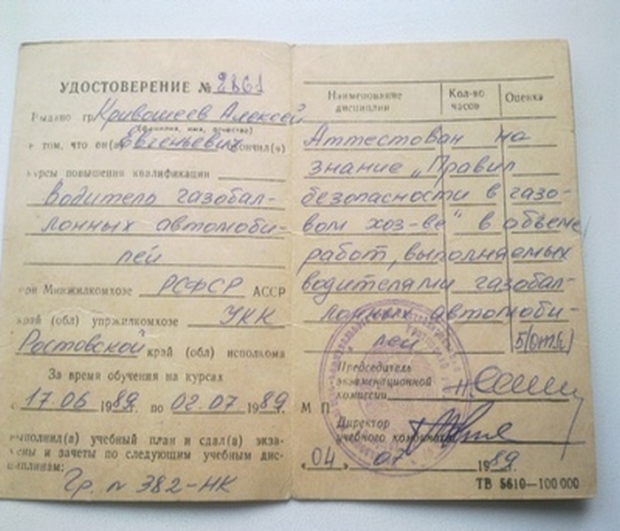 УДОСТОВЕРЕНИЕ № 2861
Выдано гр. Кривошеев Алексей
(фамилия, имя, отчество)
в том, что он(а) Евгеньевич окончил(а)
курсы повышения квалификации
водитель газобал-
лонных автомоби-
лей
при Минжилкомхозе РСФСР АССР
край (обл) упржилкомхозе УКК
Ростовской край (обл) исполкома
За время обучения на курсах
с 17.06 1989 по 02.07 1989
выполнил(а) учебный план и сдал(а) экза-
мены и зачеты по следующим учебным дис-
циплинам:
Гр. N 382-НК
Наименование дисциплин Кол-во часов Оценка
Аттестован на
знание „Правил
безопасности в газо-
вом хоз-ве" в объеме
работ, выполняемых
водителями газобал-
лонных автомоби-
лей 5(отл)
Председатель
экзаменационной
комиссии
М П
Директор
учебного комбината
«04» 07 1989
ТВ 5610—100 000